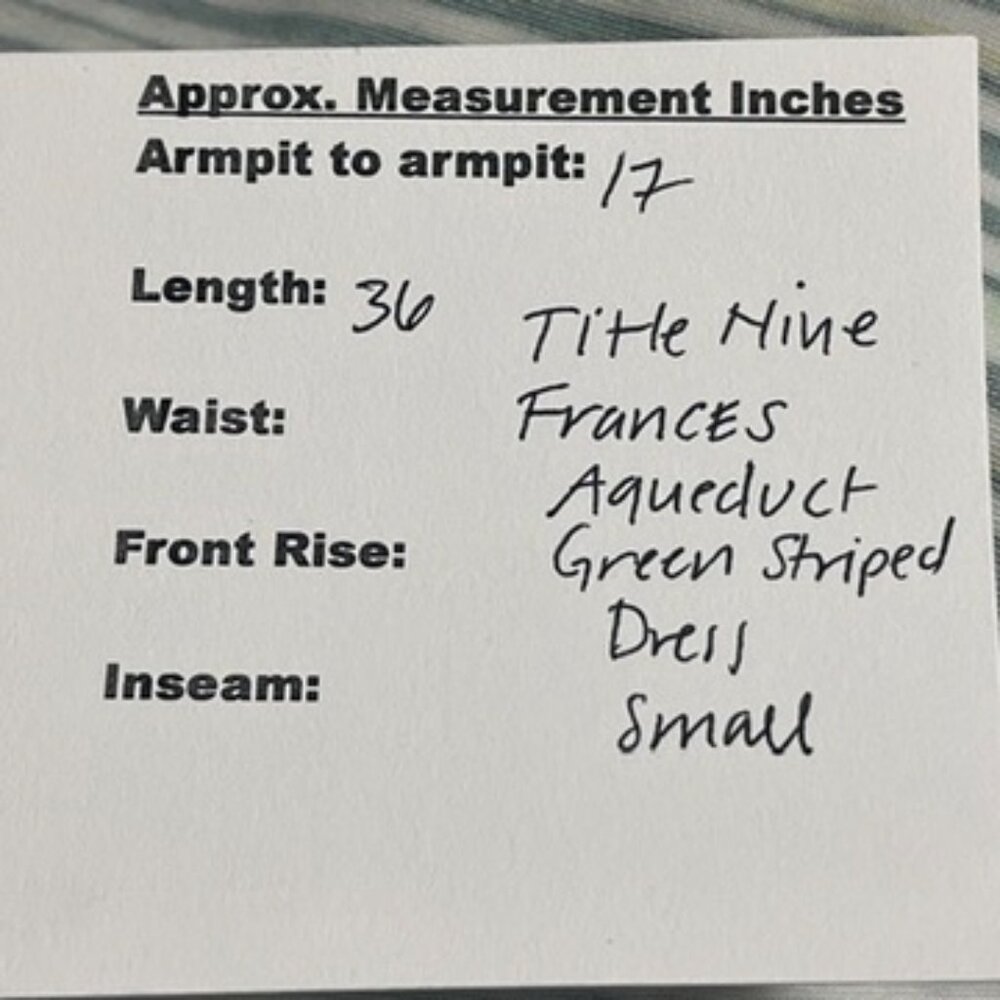 Approx. Measurement Inches
Armpit to armpit: 17
Length: 36
Title Nine
Waist:
Frances
Aqueduct
Front Rise:
Green Striped
Dress
Inseam:
Small